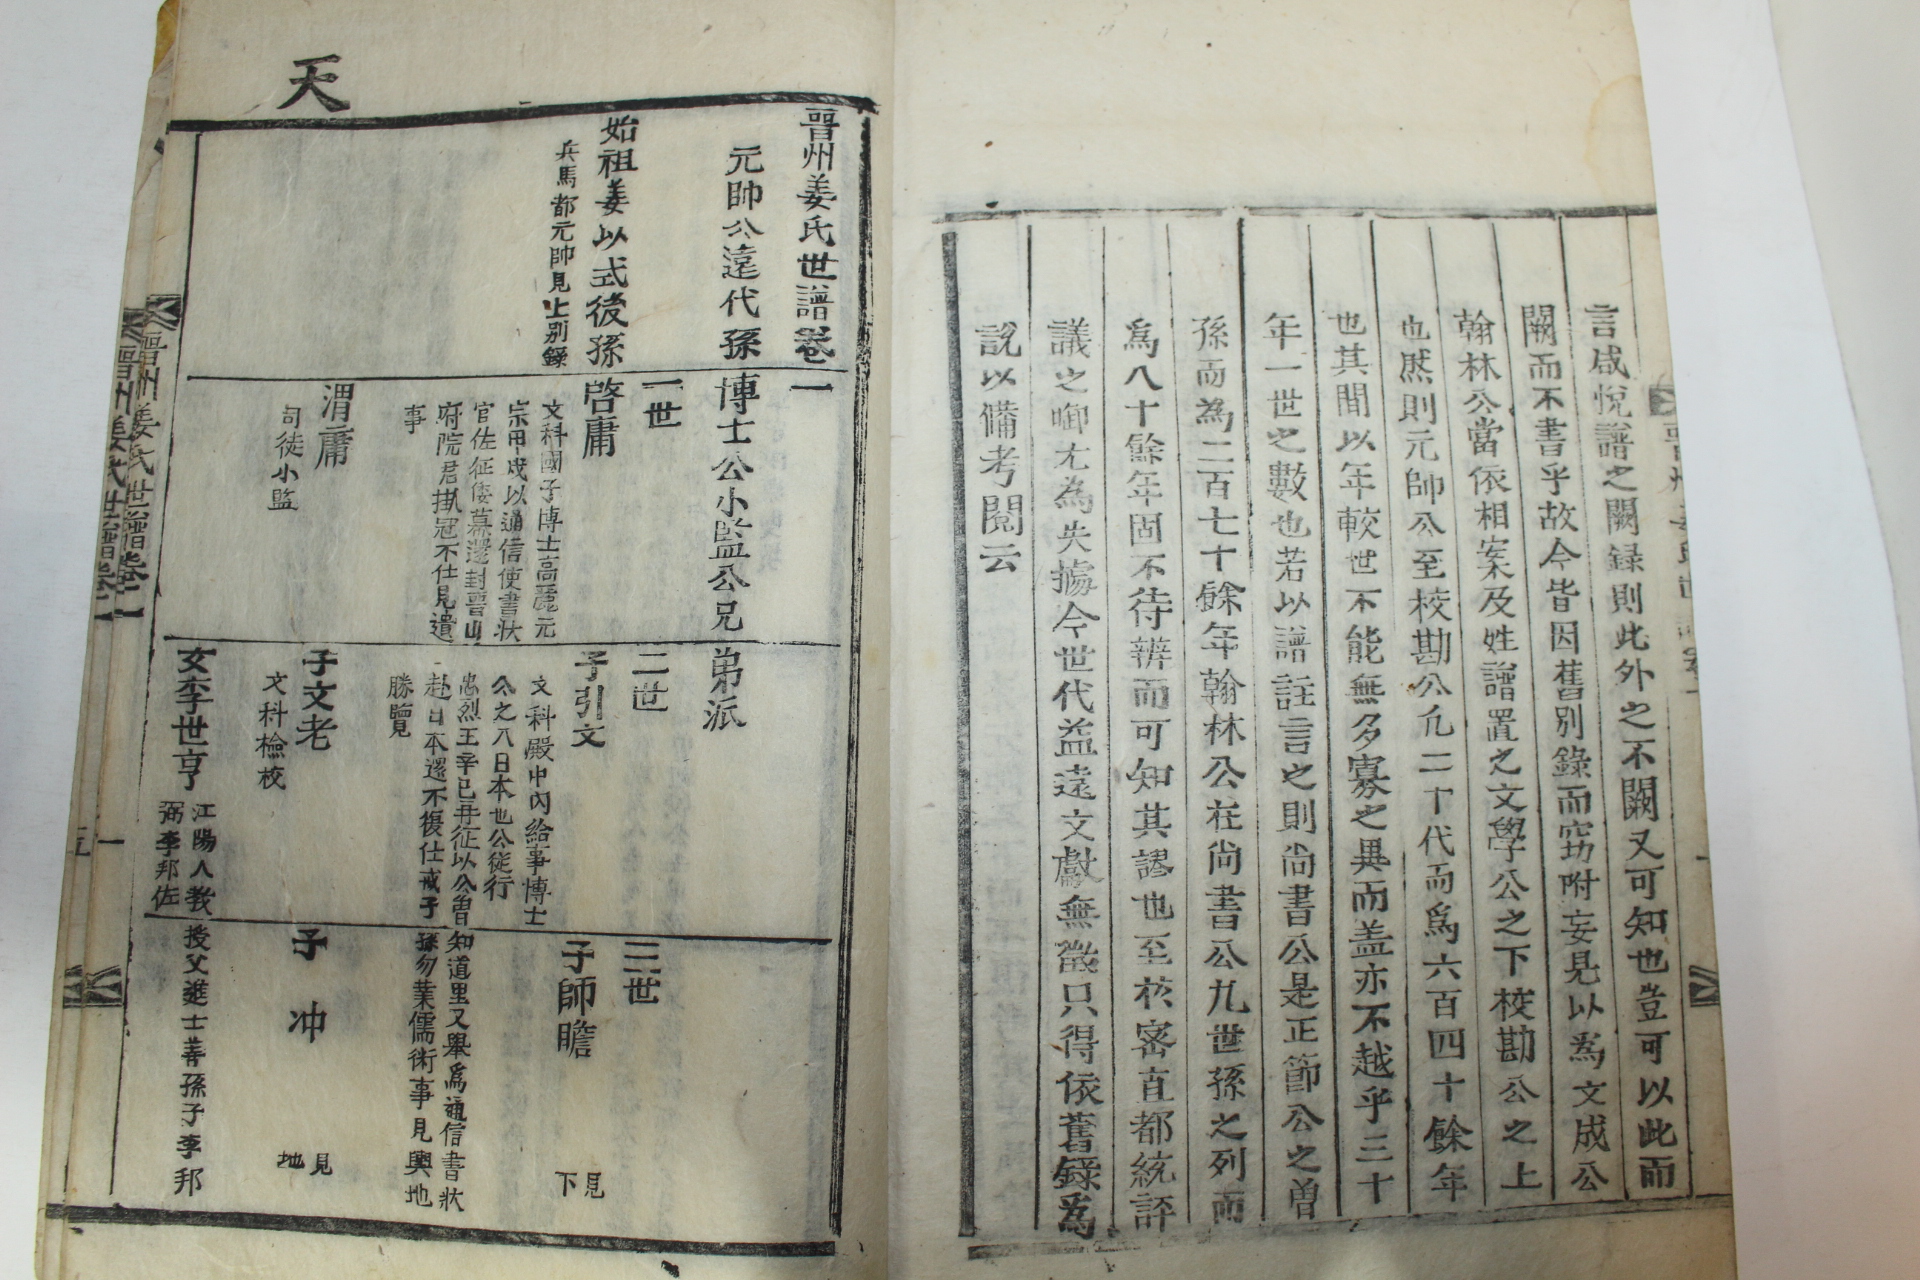 言咸悅譜之闕録則此外之不闕又可知也豈可以此而
闕而不書乎故今皆因舊別錄而窃附妄見以為文成公
翰林公當依相案及姓譜置之文學公之下校勘公之上
也然則元帥公至校勘公凢二十代而爲六百四十餘年
也其間以年較世不能無多寡之異而盖亦不越乎三十
年一世之數也若以譜註言之則尚書公是正節公之曽
孫而為二百七十餘年翰林公在尚書公九世孫之列而
爲八十餘年固不待辨而可知其謬也至於密直都統評
議之啣尤為失據今世代益遠文獻無徵只得依舊録爲
説以備考閱云
天
晋州姜氏世譜卷一
元帥公遠代孫
博士公小監公兄
弟派
始祖姜以式後孫
兵馬都元帥見上別錄
一世
啓庸
文科國子博士高麗元
宗甲戌以通信使書狀
官佐征倭幕還封晋山
府院君掛冠不仕見遺
事
渭庸
司徒小監
二世
子引文
文科殿中內給事博士
公之入日本也公從行
忠烈王辛巳再征以公曽
赴日本還不復仕戒子
勝覽
子文老
文科檢校
女李世亨
江陽人敎
弼李邦佐
三世
子師瞻
見
下
知道里又舉爲通信書狀
孫勿業儒術事見輿地
子冲
見
地
授父進士善孫子李邦
晋州姜氏世譜卷一
一